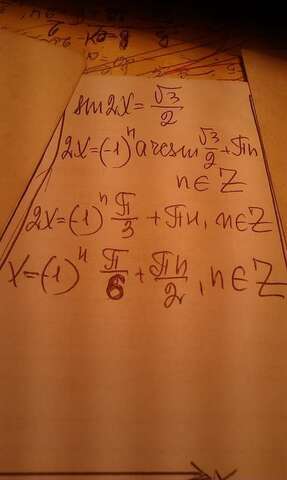 sin2x = √3/2
2x = (-1)ⁿ arcsin √3/2 + πn
n ∈ Z
2x = (-1)ⁿ π/3 + πn, n ∈ Z
x = (-1)ⁿ π/6 + πn/2, n ∈ Z
x